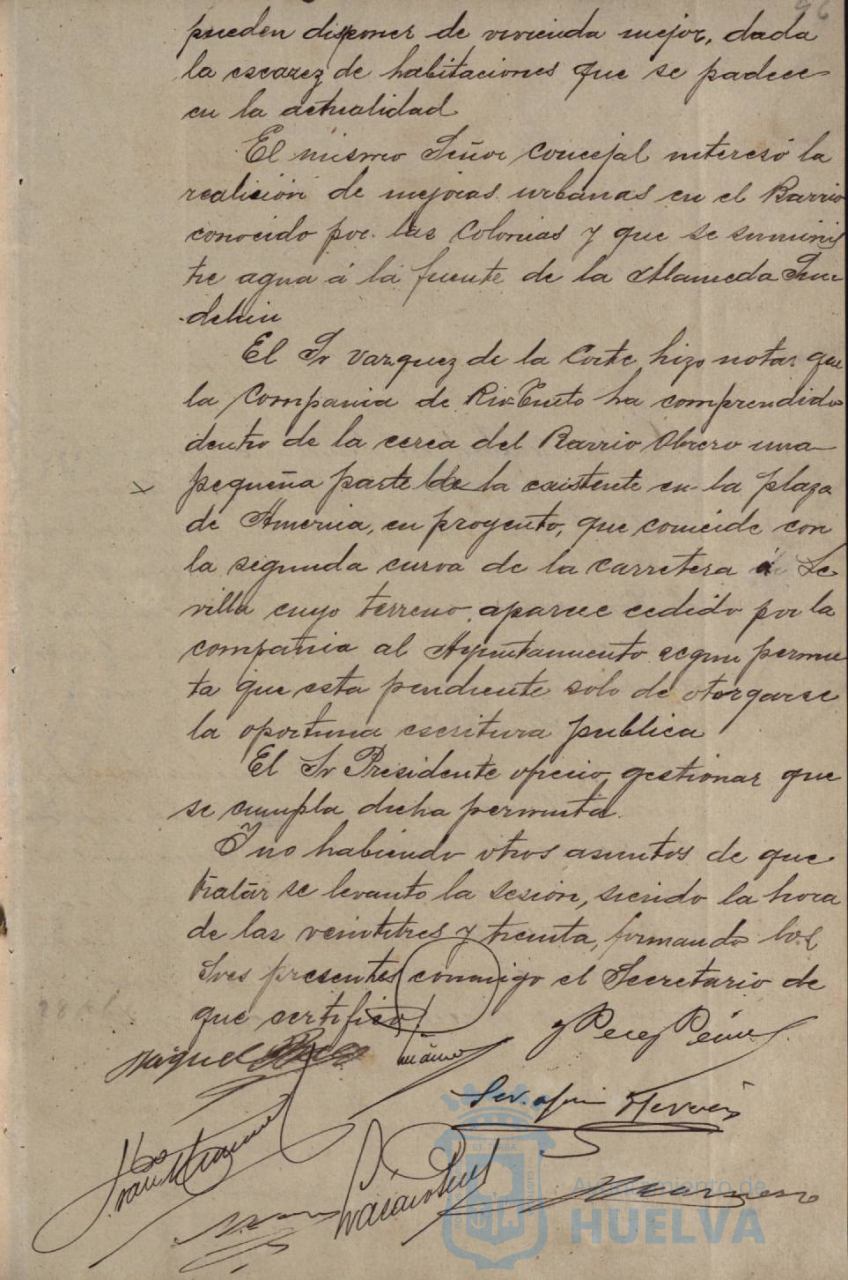 96
pueden disponer de vivienda mejor, dada
la escarez de habitaciones que se padece
en la actualidad
El mismo Señor concejal interesó la
realisión de mejoras urbanas en el Barrio
conocido por las Colonias y que se suminis
tre agua á la fuente de la Alameda Sun
dehin
El Sr Vazquez de la Corte hizo notar que
la Compania de Rio-Tinto ha comprendido
dentro de la cerca del Barrio Obrero una
pequeña parte de la existente en la plaza
de America, en proyecto, que coincide con
la segunda curva de la carretera á Se
villa cuyo terreno aparece cedido por la
compañia al Ayuntamiento segun permu
ta que esta pendiente solo de otorgarse
la oportuna escritura publica
El Sr Presidente ofrecio gestionar que
se cumpla dicha permuta.
Y no habiendo otros asuntos de que
tratar se levanto la sesión, siendo la hora
de las veintitres y treinta, firmando los
Sres presentes conmigo el Secretario de
que certifico
Miguel
Serafin
Ayuntamiento de
HUELVA